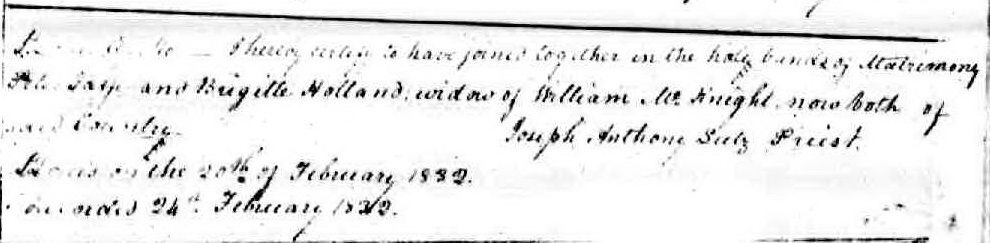 I hereby certify to have joined together in the holy bands of Matrimony
and Brigitte Holland, widow of William McKnight, now both of
said County. Joseph Anthony Lutz Priest.
on the 20th of February 1832.
Recorded 24th February 1832.